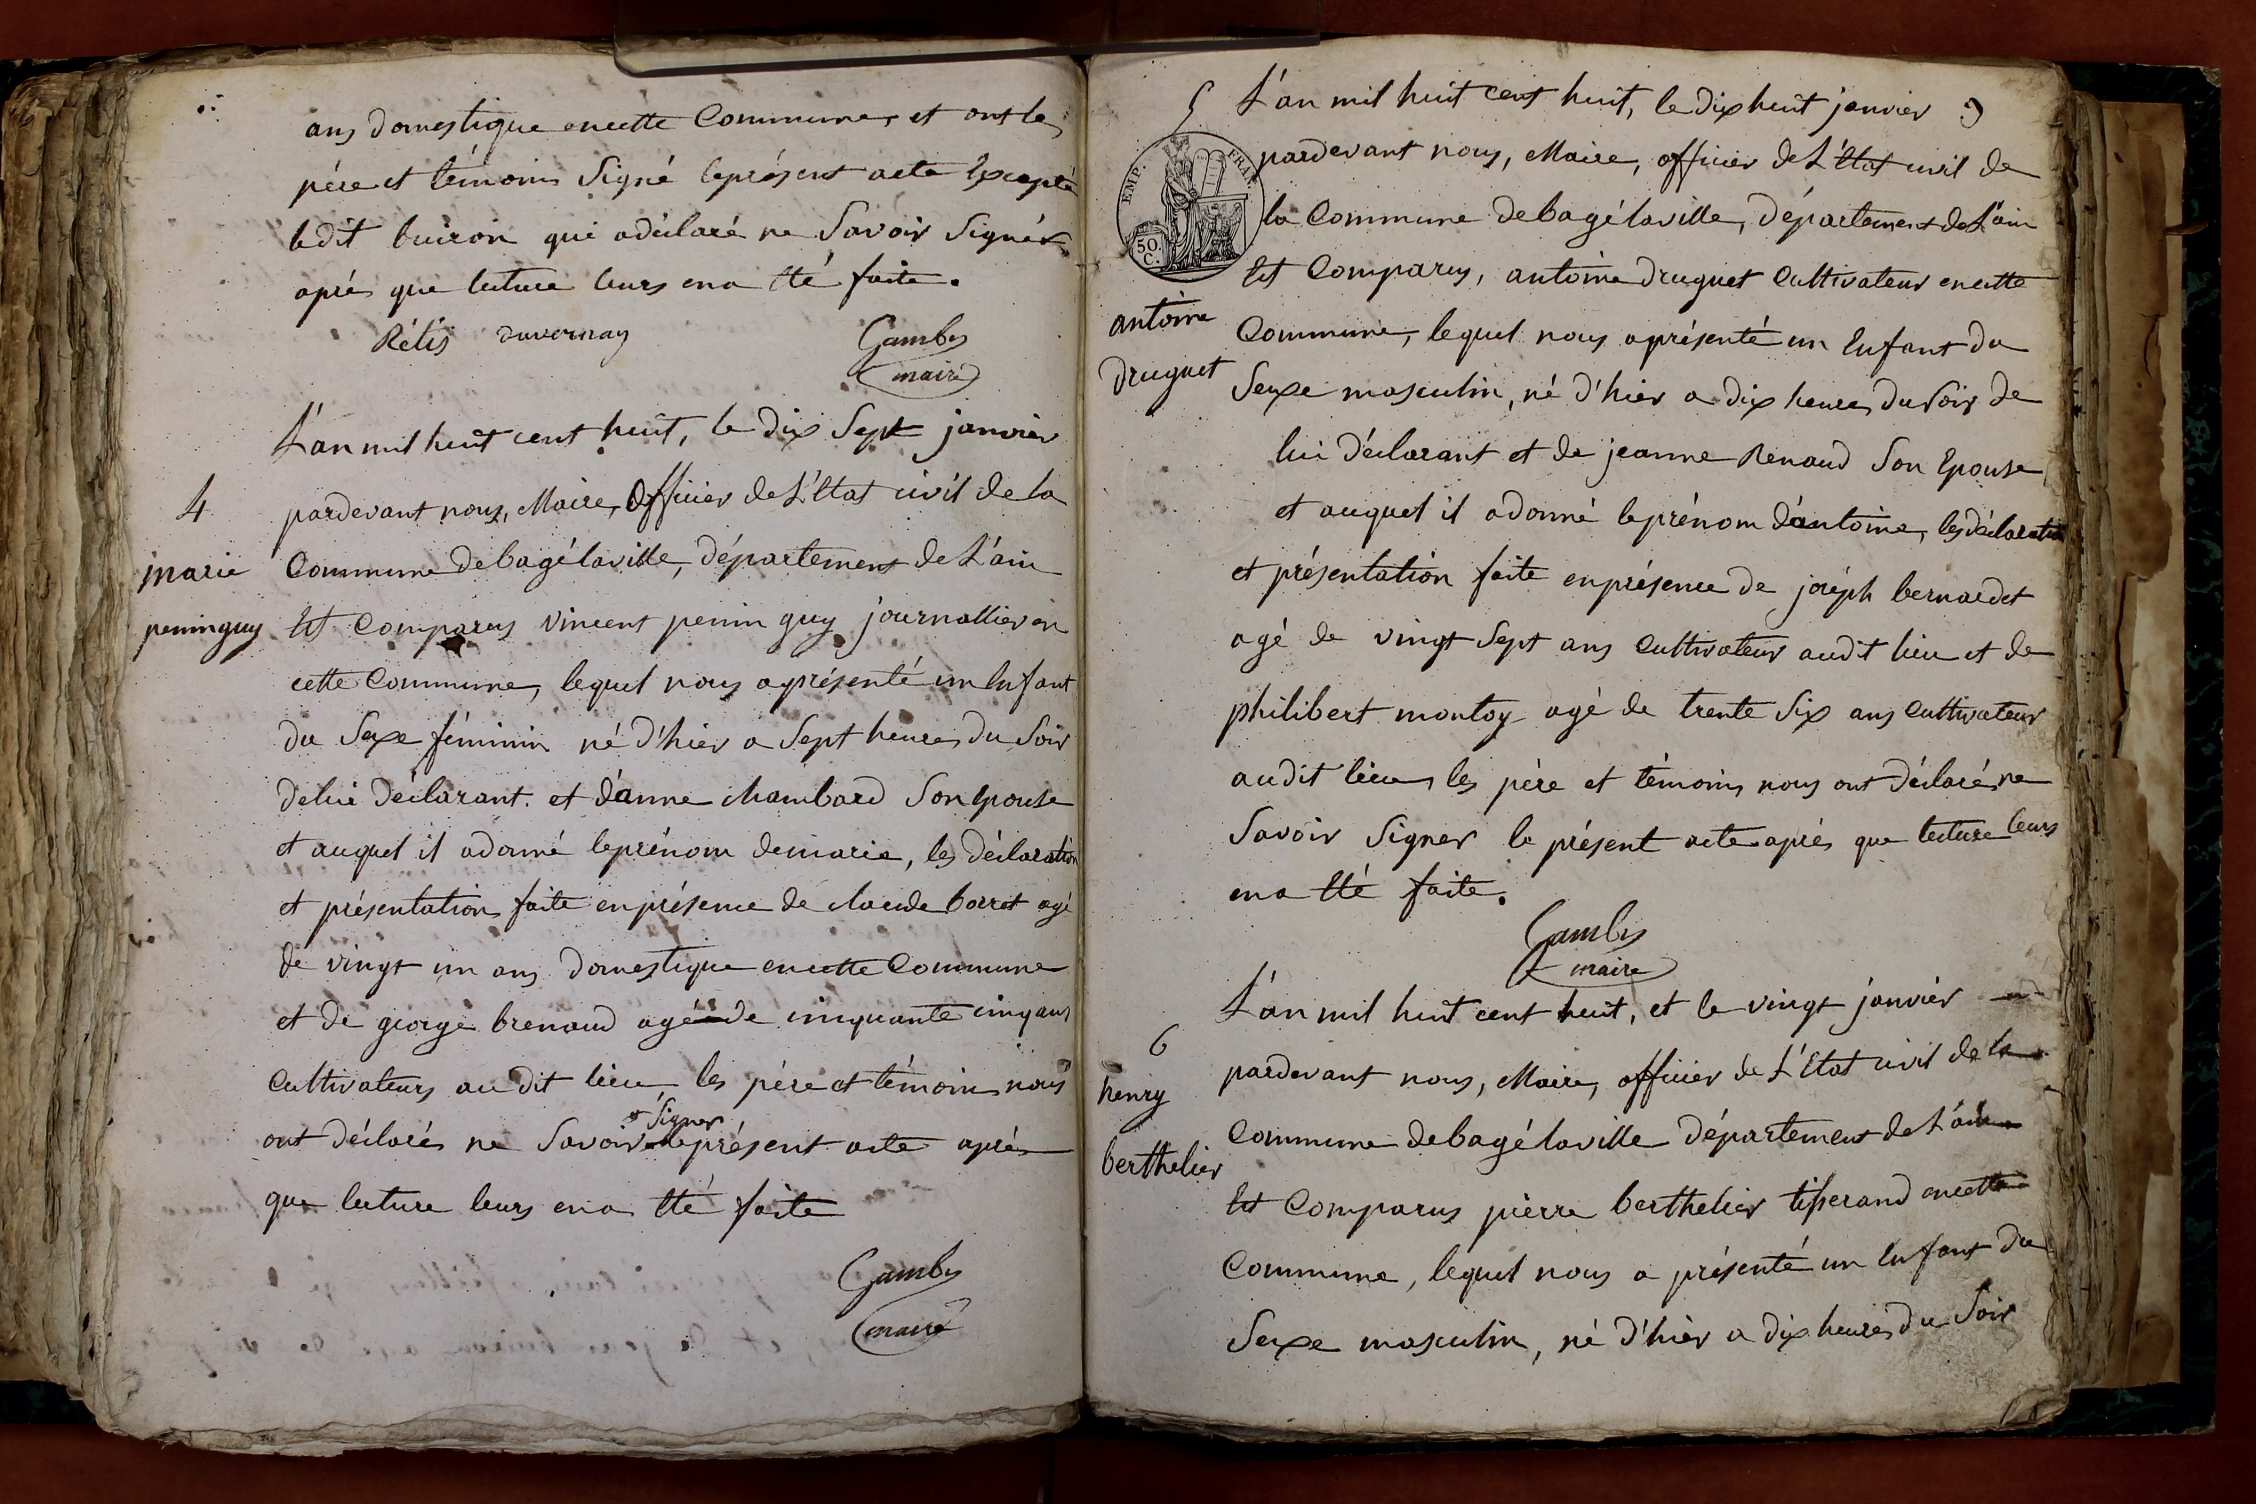 ans domestique en cette Commune, et ont les
père et témoins Signé le présent acte Excepté
ledit buiron qui a déclaré ne Savoir Signér
après que lecture leurs en a Eté faite.
Rétis duvernay Gambes
maire
L'an mil huit cent huit, le dix Sept janvier
4
pardevant nous, Maire, Officier de L'Etat civil de la
marie
Commune de bagé laville, département de L'ain
peninguy
Est Comparus vincent penin guy journallier en
cette Commune, lequel nous a présenté un Enfant
du Sexe féminin né d'hier a Sept heures du Soir
de lui déclarant. et d'anne chambard Son Epouse
et auquel il a donné le prénom de marie, les déclaration
et présentation faite en présence de claude borret agé
de vingt un ans domestique en cette Commune
et de george brenaud agé de cinquante cinq ans
Cultivateurs au dit lieu, les père et témoins nous
Signer
ont déclarés ne Savoir le présent acte après
que lecture leurs en a Eté faite
Gambes
maire
5
L'an mil huit cent huit, le dix huit janvier
EMP. FRAN.
50. C.
pardevant nous, Maire, officier de L'Etat civil de
la Commune de bagé laville, département de L'ain
Est Comparus, antoine druguet Cultivateur en cette
antoine
Commune, lequel nous a présenté un Enfant du
druguet
Sexe masculin, né d'hier a dix heures du Soir de
lui déclarant et de jeanne Renaud Son Epouse
et auquel il a donné le prénom d'antoine, les déclaration
et présentation faite en présence de joseph bernardet
agé de vingt Sept ans Cultivateur audit lieu et de
philibert montoy agé de trente Six ans Cultivateur
audit lieu, les père et témoins nous ont déclarés ne
Savoir Signer le présent acte après que lecture leurs
en a Eté faite.
Gambes
maire
L'an mil huit cent huit, et le vingt janvier
6
pardevant nous, Maire, officier de L'Etat civil de la
henry
Commune de bagé laville département de L'ain
berthelier
Est Comparus pierre berthelier tisserand en cette
Commune, lequel nous a présenté un Enfant du
Sexe masculin, né d'hier a dix heures du Soir